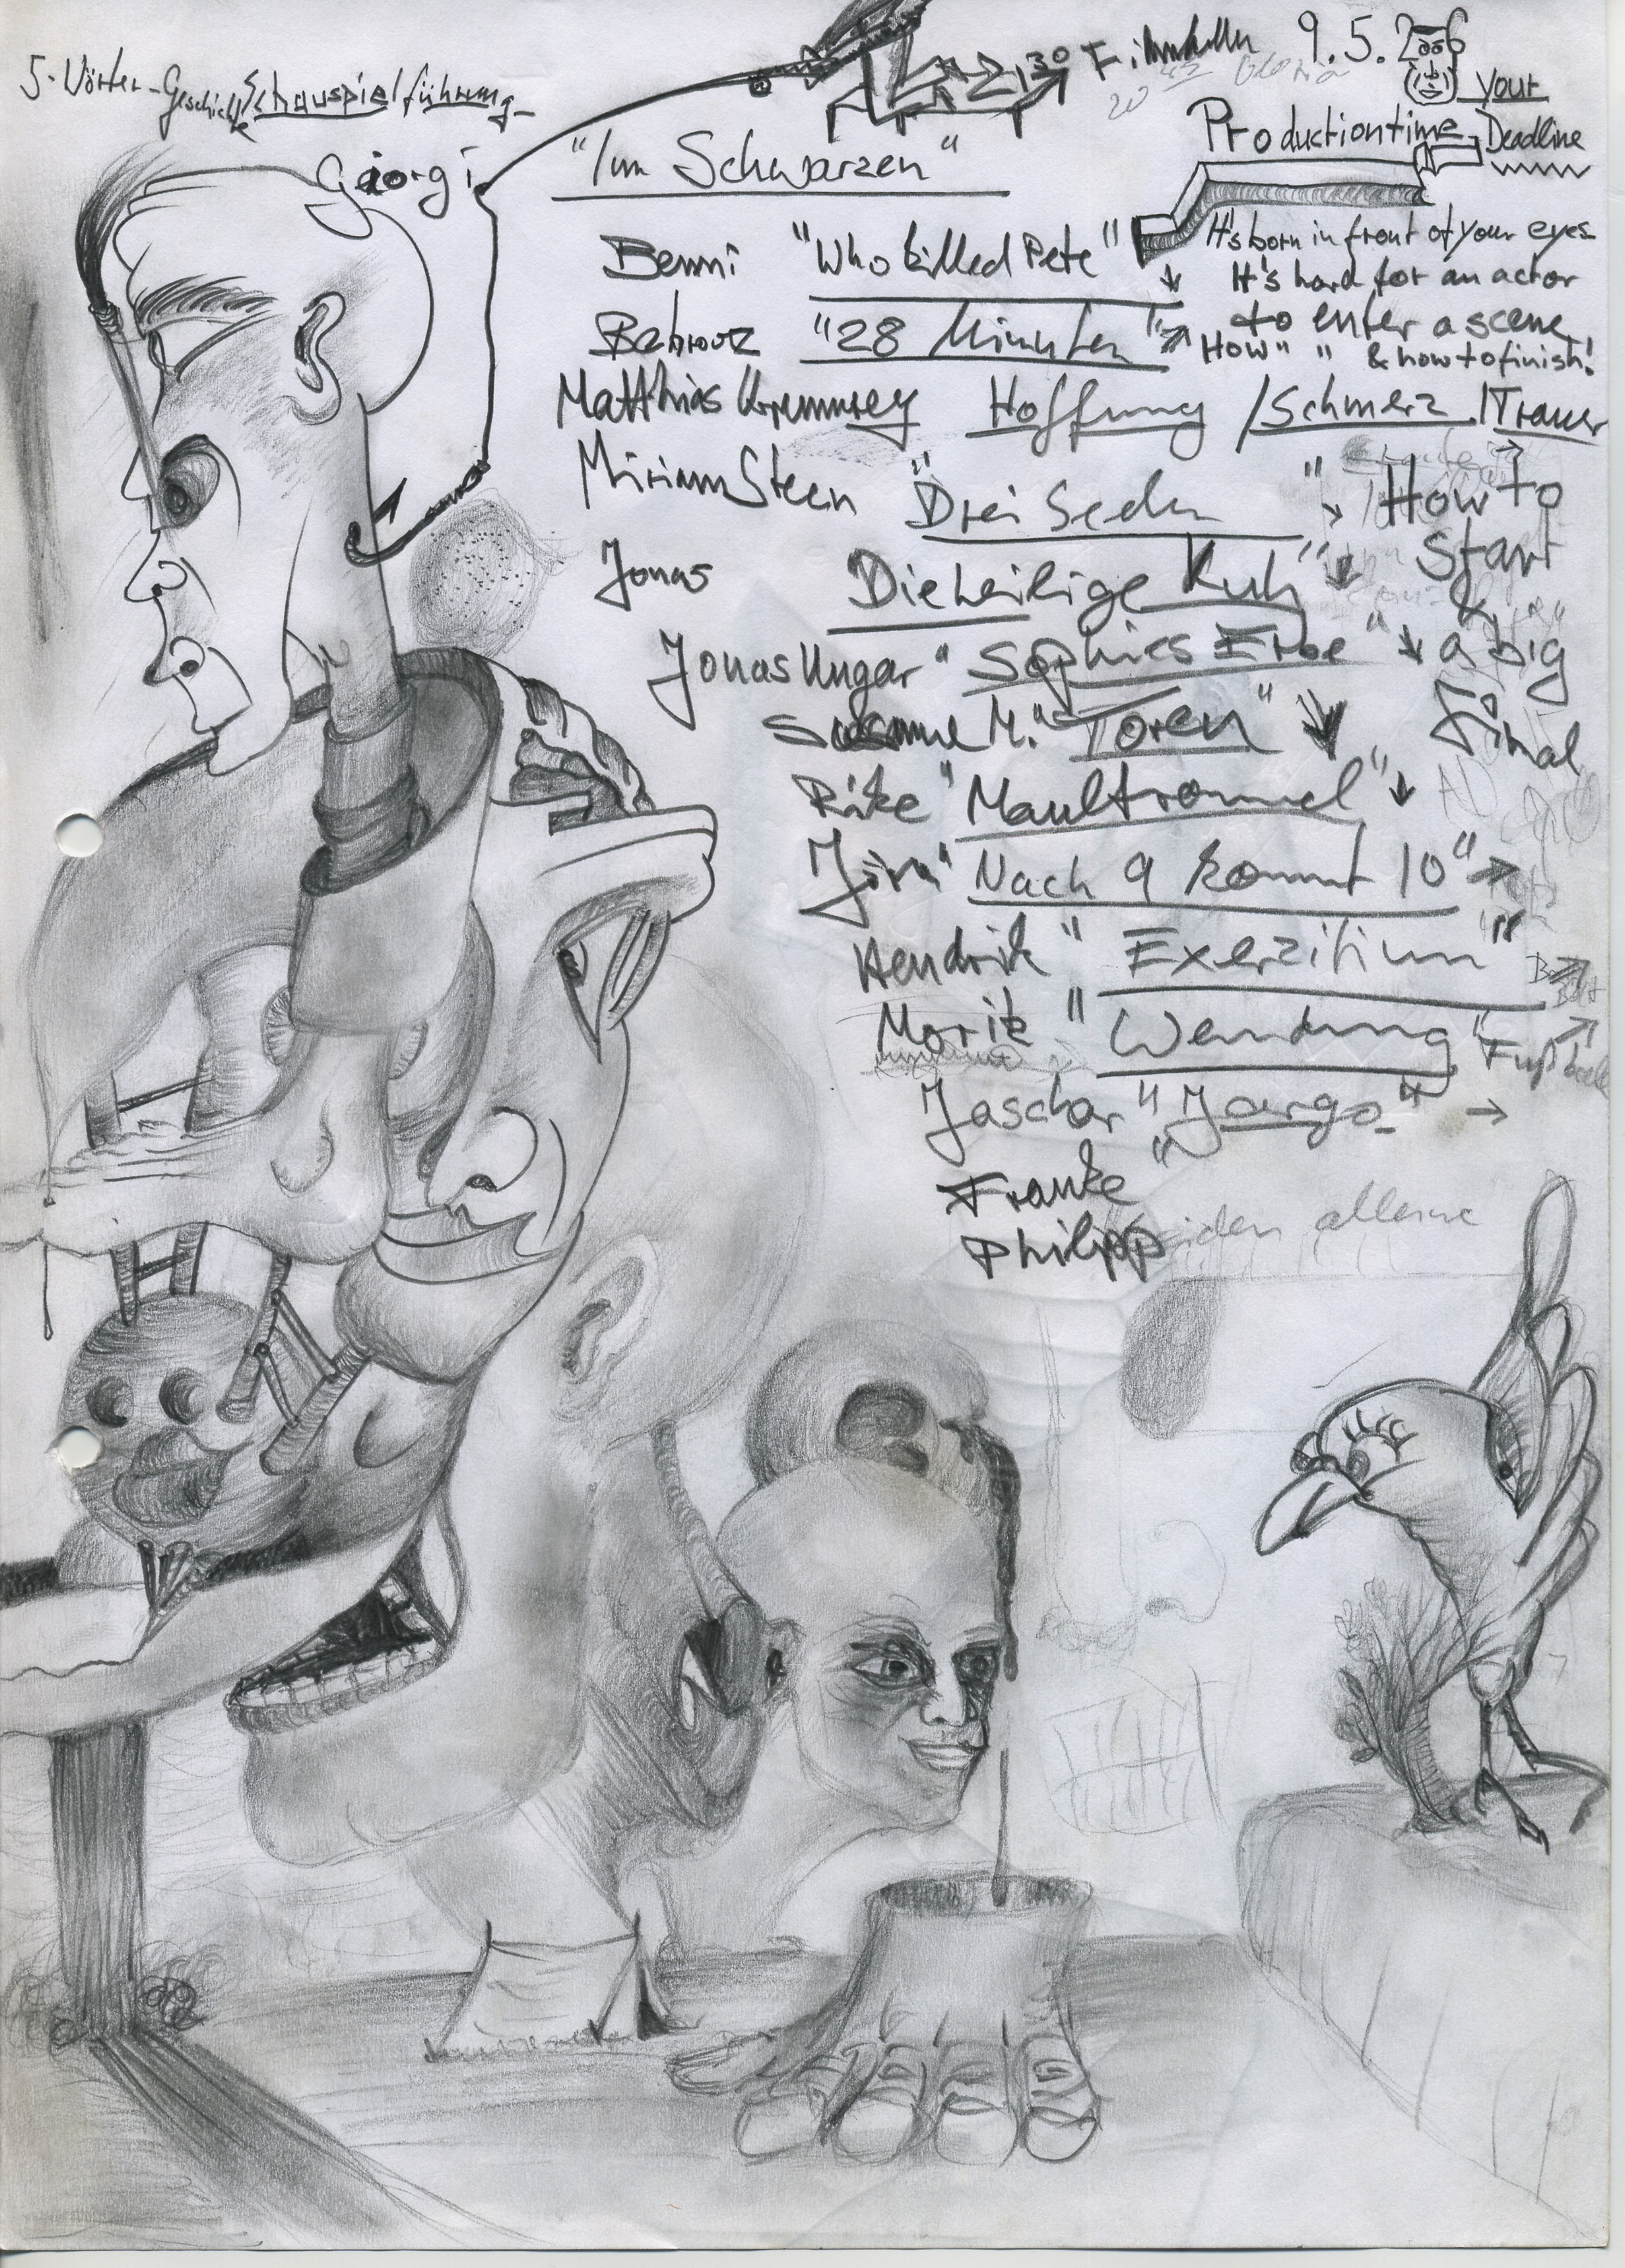 5-Wörter-Geschichte Schauspielführung-
21³⁰ Filmkeller 9.5.2006
Your
Productiontime Deadline
Giorgi "Im Schwarzen"
Benni "Who killed Pete"
It's born in front of your eyes
It's hard for an actor
to enter a scene
How " " & how to finish!
"28 Minuten"
Matthias Hoffnung / Schmerz / Trauer
Miriam Steen "Drei Seelen" How to
Start
Jonas Die heilige Kuh" &
Jonas Ungar "Sophies Erbe" a big
Susanne M. "Toren" Final
Rike "Maultrommel"
Jörn "Nach 9 kommt 10"
Hendrik "Exerzitium"
Moritz "Wendung" Fußball
Jaschar "Jargo"
Franke "
Philipp
alleine